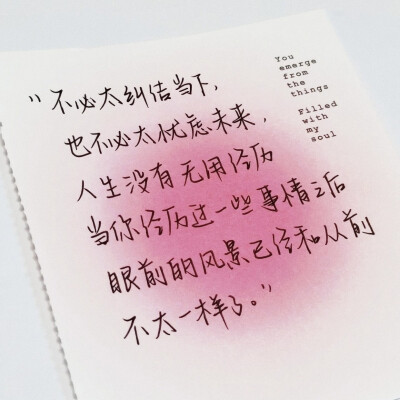 “不必太纠结当下,
也不必太忧虑未来,
人生没有无用经历
当你经历过一些事情之后
眼前的风景已经和从前
不太一样了。”
You
emerge
from
the
things
Filled
with
my
soul